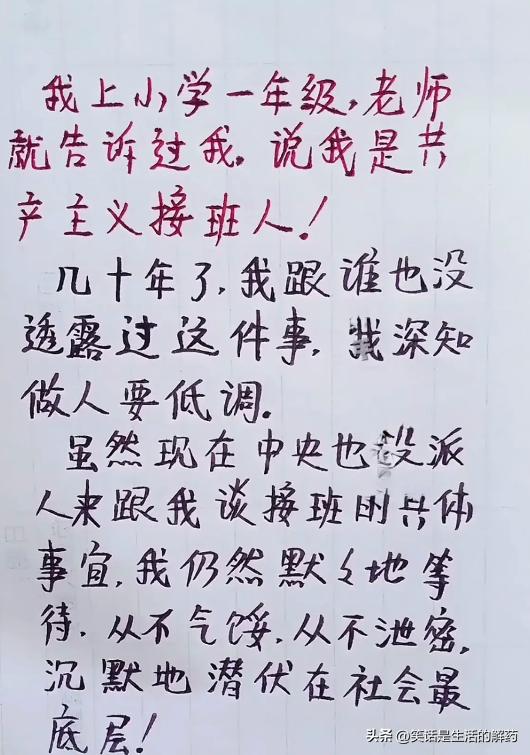 我上小学一年级，老师
就告诉过我。说我是共
产主义接班人！
几十年了，我跟谁也没
透露过这件事，我深知
做人要低调。
虽然现在中央也没派
人来跟我谈接班的具体
事宜，我仍然默々地等
待．从不气馁．从不泄密，
沉默地潜伏在社会最
底层！
头条@笑话是生活的解药